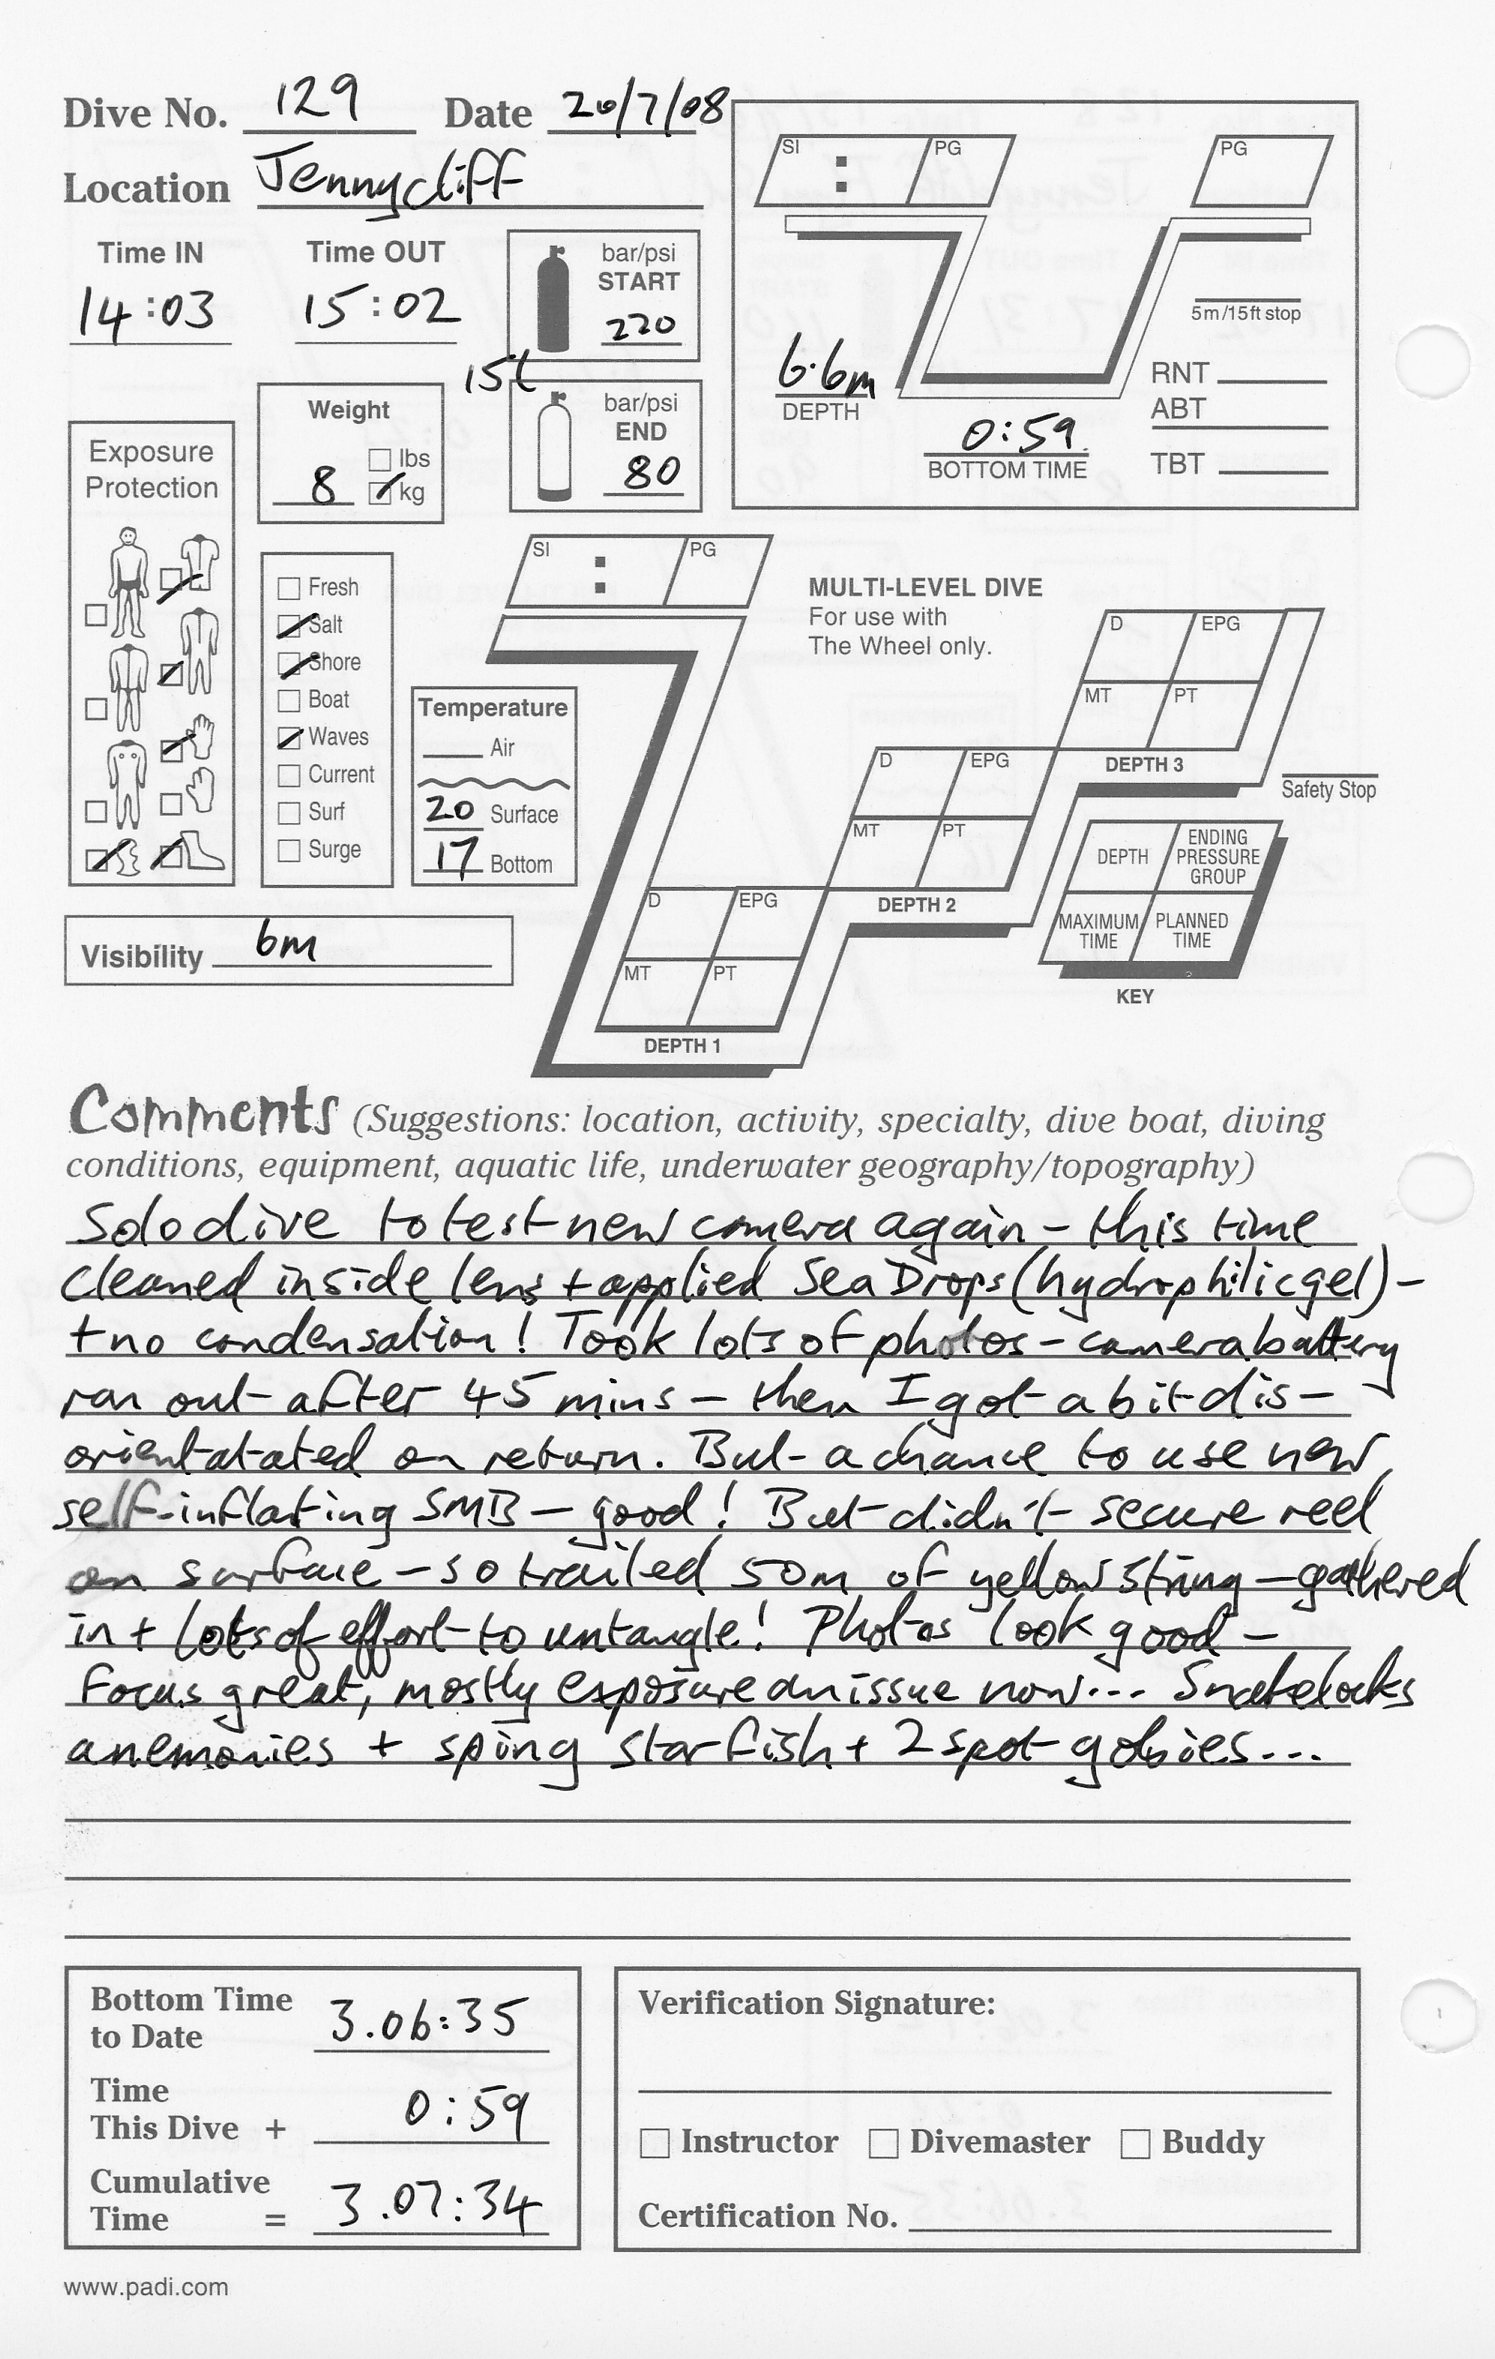 Dive No. 129 Date 20/7/08
Location Jennycliff
Time IN Time OUT
14:03 15:02
bar/psi
START
220
15l
bar/psi
END
80
Weight
lbs
8 kg
Exposure
Protection
Fresh
Salt
Shore
Boat
Waves
Current
Surf
Surge
Temperature
Air
20 Surface
17 Bottom
Visibility 6m
SI : PG PG
5m/15ft stop
6.6m
DEPTH
0:59
BOTTOM TIME
RNT
ABT
TBT
SI : PG
MULTI-LEVEL DIVE
For use with
The Wheel only.
D EPG
MT PT
DEPTH 3
Safety Stop
D EPG
MT PT
DEPTH 2
D EPG
MT PT
DEPTH 1
DEPTH
ENDING
PRESSURE
GROUP
MAXIMUM
TIME
PLANNED
TIME
KEY
Comments (Suggestions: location, activity, specialty, dive boat, diving
conditions, equipment, aquatic life, underwater geography/topography)
Solo dive to test new camera again – this time
cleaned inside lens + applied Sea Drops (hydrophilic gel) –
+ no condensation! Took lots of photos – camera battery
ran out after 45 mins – then I got a bit dis-
orientatated on return. But a chance to use new
self-inflating SMB – good! But didn't secure reel
on surface – so trailed 50m of yellow string – gathered
in + lots of effort to untangle! Photos look good –
Focus great, mostly exposure an issue now... Snakelocks
anemonies + sping starfish + 2 spot gobies...
Bottom Time
to Date 3.06:35
Time
This Dive + 0:59
Cumulative
Time = 3.07:34
Verification Signature:
Instructor Divemaster Buddy
Certification No.
www.padi.com